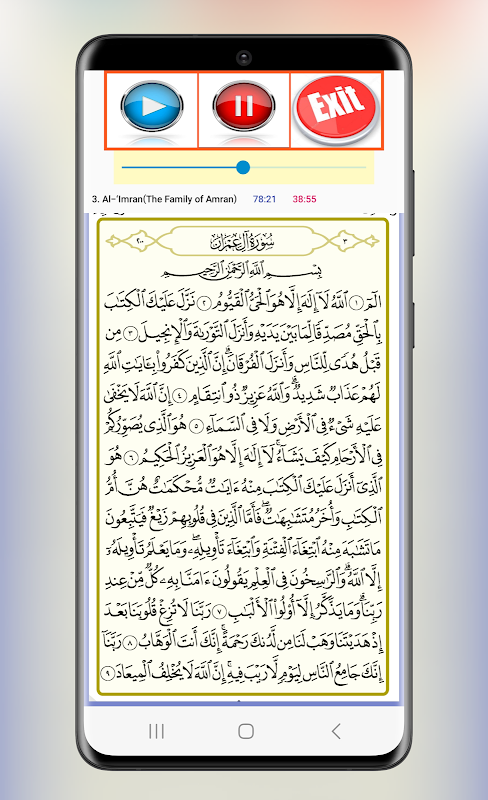 Exit
3. Al-'Imran(The Family of Amran) 78:21 38:55
٢٠٠ سُورَةُ آلِ عِمْرَانَ ٣
بِسْمِ ٱللَّهِ ٱلرَّحْمَٰنِ ٱلرَّحِيمِ
الٓمٓ ١ ٱللَّهُ لَآ إِلَٰهَ إِلَّا هُوَ ٱلْحَىُّ ٱلْقَيُّومُ ٢ نَزَّلَ عَلَيْكَ ٱلْكِتَٰبَ
بِٱلْحَقِّ مُصَدِّقًا لِّمَا بَيْنَ يَدَيْهِ وَأَنزَلَ ٱلتَّوْرَىٰةَ وَٱلْإِنجِيلَ ٣ مِن
قَبْلُ هُدًى لِّلنَّاسِ وَأَنزَلَ ٱلْفُرْقَانَ ۗ إِنَّ ٱلَّذِينَ كَفَرُوا۟ بِـَٔايَٰتِ ٱللَّهِ
لَهُمْ عَذَابٌ شَدِيدٌ ۗ وَٱللَّهُ عَزِيزٌ ذُو ٱنتِقَامٍ ٤ إِنَّ ٱللَّهَ لَا يَخْفَىٰ
عَلَيْهِ شَىْءٌ فِى ٱلْأَرْضِ وَلَا فِى ٱلسَّمَآءِ ٥ هُوَ ٱلَّذِى يُصَوِّرُكُمْ
فِى ٱلْأَرْحَامِ كَيْفَ يَشَآءُ ۚ لَآ إِلَٰهَ إِلَّا هُوَ ٱلْعَزِيزُ ٱلْحَكِيمُ ٦ هُوَ
ٱلَّذِىٓ أَنزَلَ عَلَيْكَ ٱلْكِتَٰبَ مِنْهُ ءَايَٰتٌ مُّحْكَمَٰتٌ هُنَّ أُمُّ
ٱلْكِتَٰبِ وَأُخَرُ مُتَشَٰبِهَٰتٌ ۖ فَأَمَّا ٱلَّذِينَ فِى قُلُوبِهِمْ زَيْغٌ فَيَتَّبِعُونَ
مَا تَشَٰبَهَ مِنْهُ ٱبْتِغَآءَ ٱلْفِتْنَةِ وَٱبْتِغَآءَ تَأْوِيلِهِۦ ۗ وَمَا يَعْلَمُ تَأْوِيلَهُۥٓ
إِلَّا ٱللَّهُ ۗ وَٱلرَّٰسِخُونَ فِى ٱلْعِلْمِ يَقُولُونَ ءَامَنَّا بِهِۦ كُلٌّ مِّنْ عِندِ
رَبِّنَا ۗ وَمَا يَذَّكَّرُ إِلَّآ أُو۟لُوا۟ ٱلْأَلْبَٰبِ ٧ رَبَّنَا لَا تُزِغْ قُلُوبَنَا بَعْدَ
إِذْ هَدَيْتَنَا وَهَبْ لَنَا مِن لَّدُنكَ رَحْمَةً ۚ إِنَّكَ أَنتَ ٱلْوَهَّابُ ٨ رَبَّنَآ
إِنَّكَ جَامِعُ ٱلنَّاسِ لِيَوْمٍ لَّا رَيْبَ فِيهِ ۚ إِنَّ ٱللَّهَ لَا يُخْلِفُ ٱلْمِيعَادَ ٩